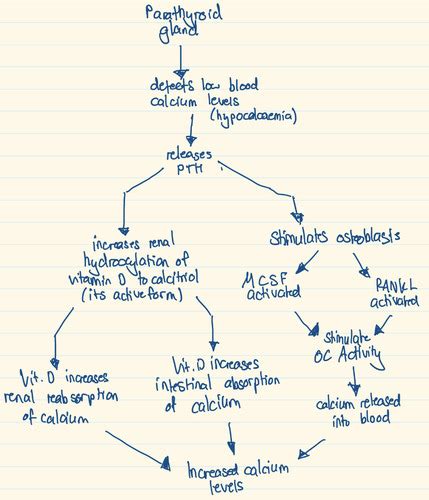 Parathyroid
gland
detects low blood
calcium levels
(hypocalcaemia)
releases
PTH
increases renal
hydroxylation of
vitamin D to calcitriol
(its active form)
Stimulates osteoblasts
MCSF
activated
RANKL
activated
Stimulate
OC Activity
Vit. D increases
renal reabsorption
of calcium
Vit. D increases
intestinal absorption
of calcium
calcium released
into blood
Increased calcium
levels